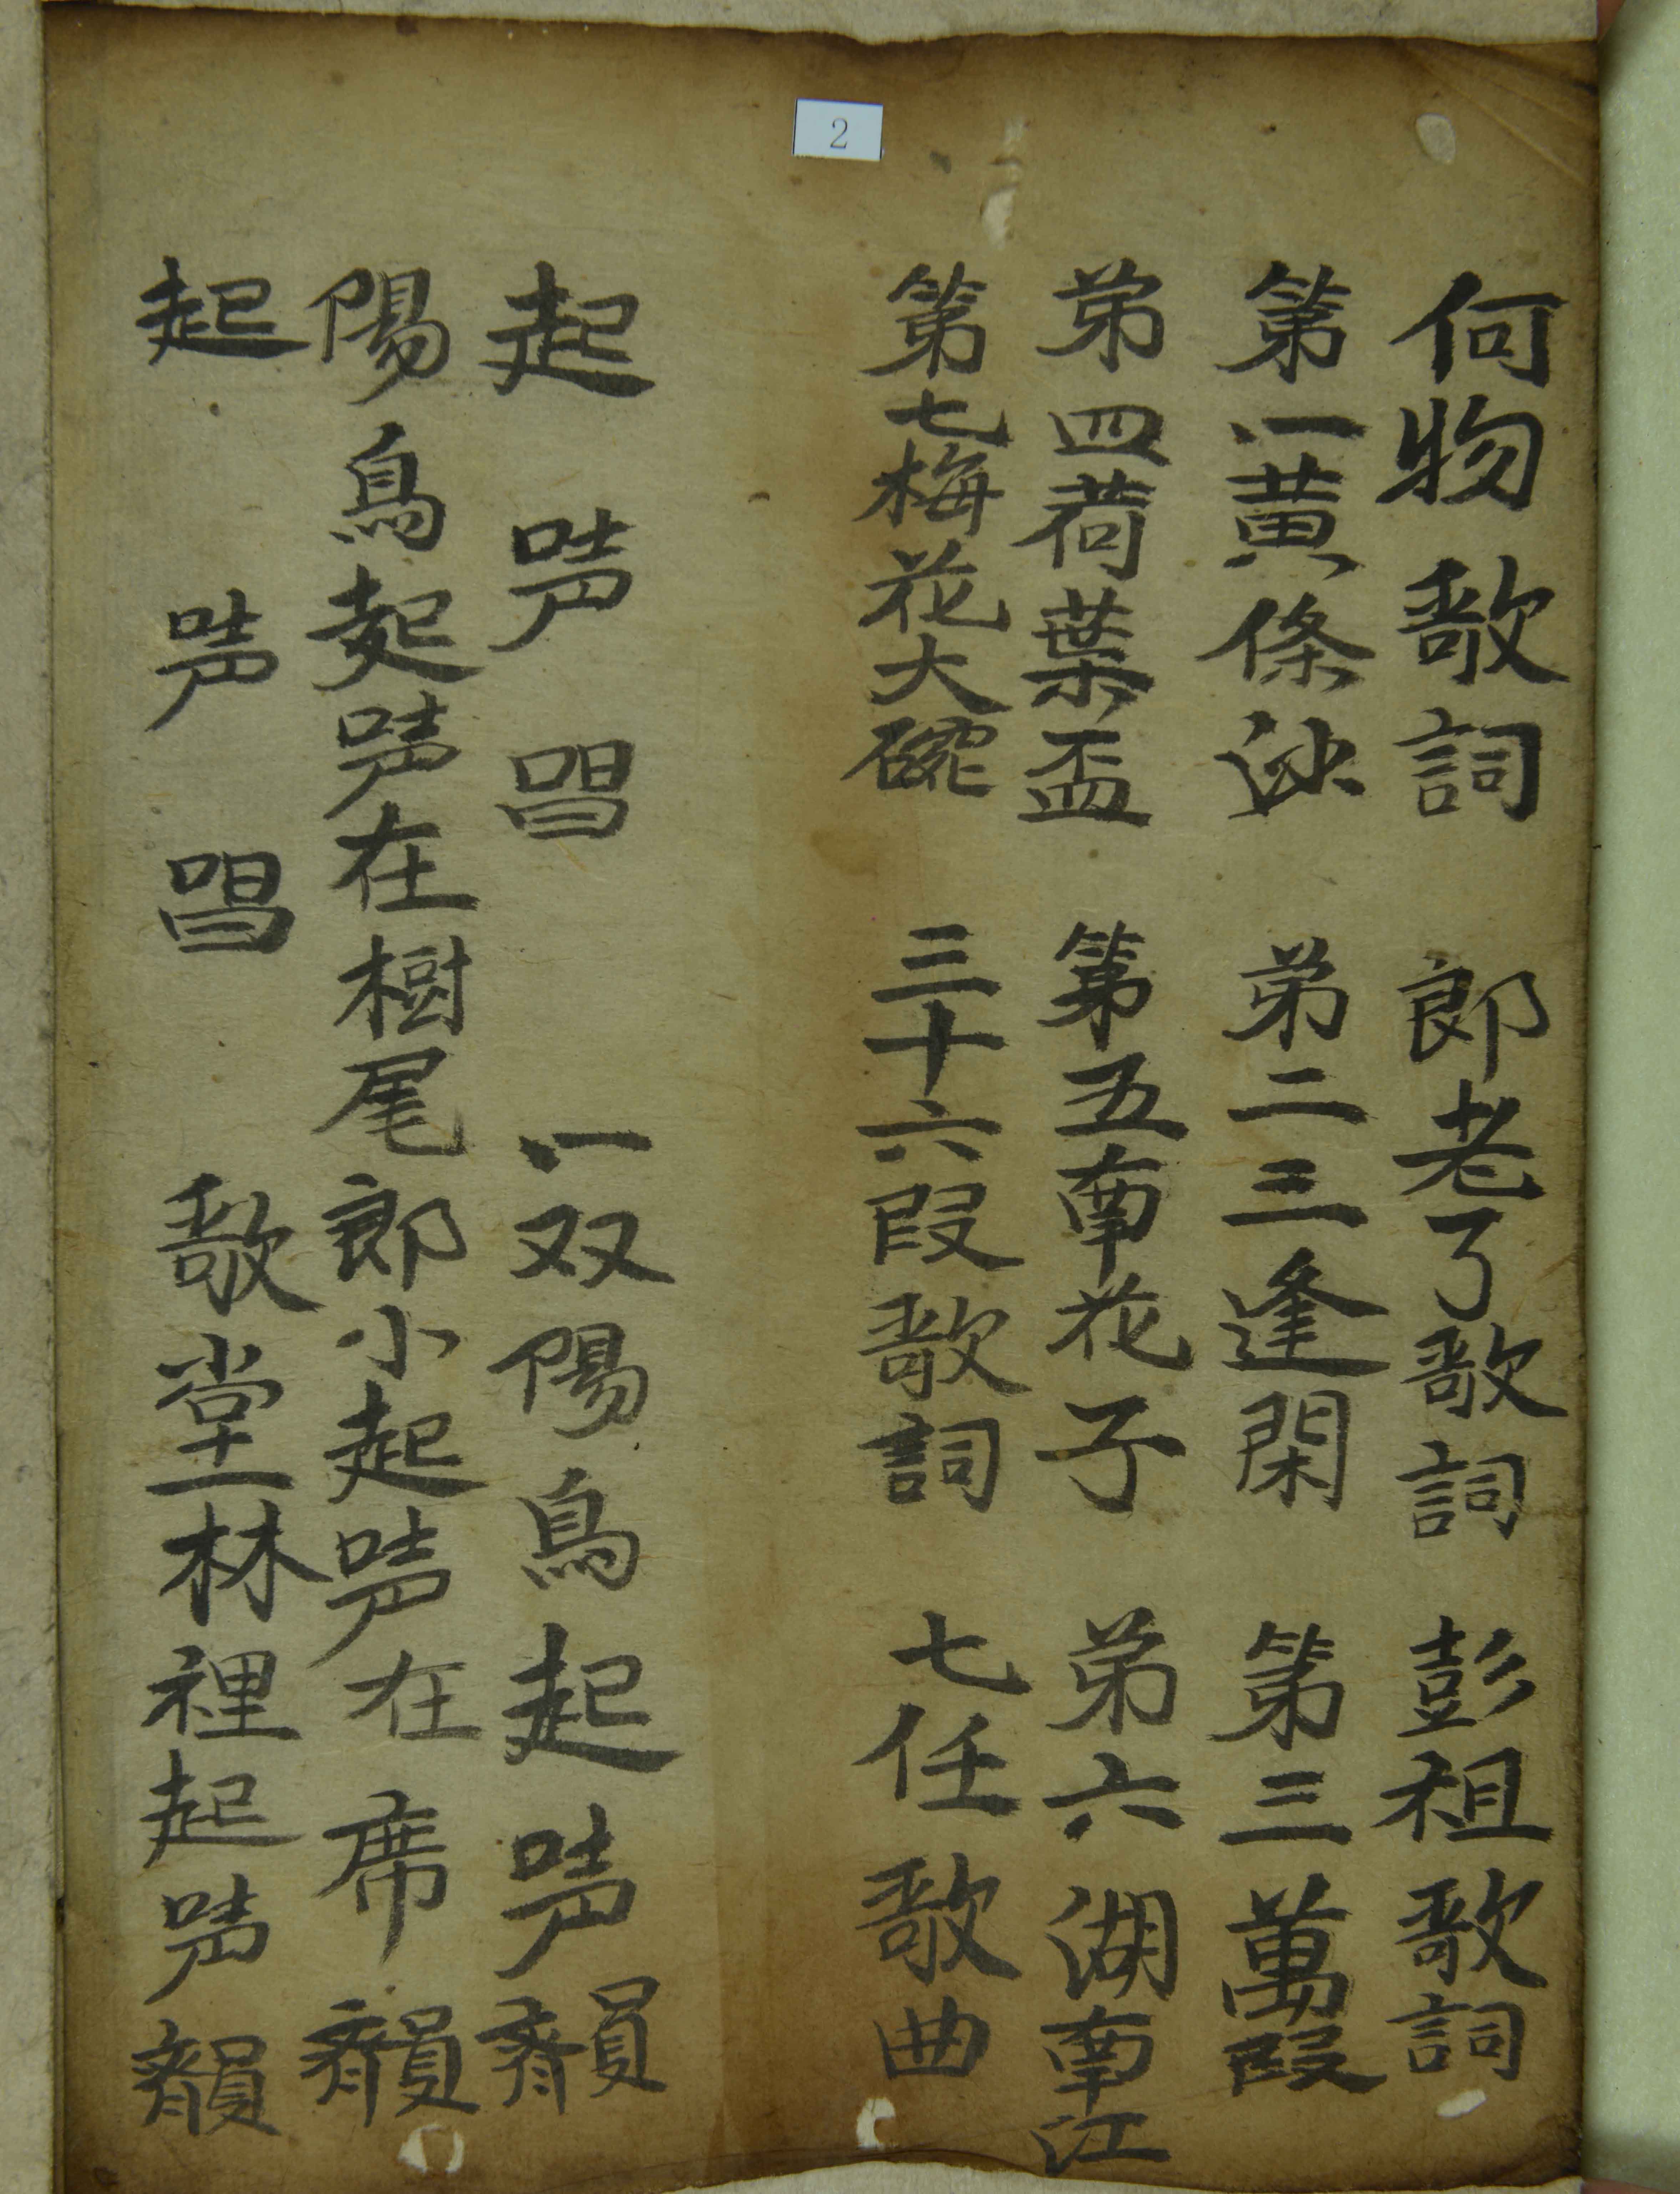 2
何物歌詞 郎老了歌詞 彭祖歌詞
第一黄條沙 弟二三逢閑 第三萬段
弟四荷葉盃 第五南花子 弟六湖南江
第七梅花大碗 三十六段歌詞 七任歌曲
起 唱 一双陽鳥起
陽鳥起 在樹尾郎小起 在席
起 唱 歌堂林裡起